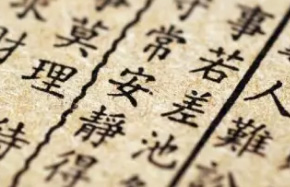 人難訟
事若差池
常安靜得
莫理待
財